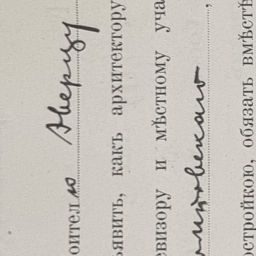 оителю Аверцу
ъявить, какъ архитектору
евизору и мѣстному уча
остройкою, обязать вмѣстѣ